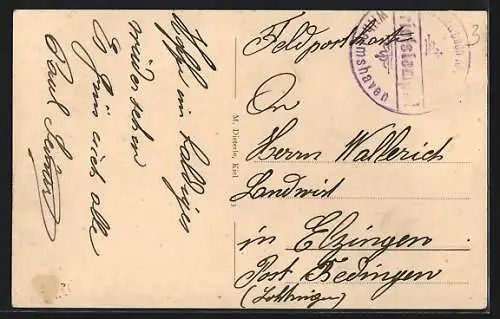 Hoffe ein baldiges
wiedersehen
Es grüßt euch alle
Paul
M. Dieterle, Kiel
Feldpostkarte
An
Herrn Wallerich
Landwirt
in Elzingen
Post Redingen
(Lothringen)
Briefstempel
3